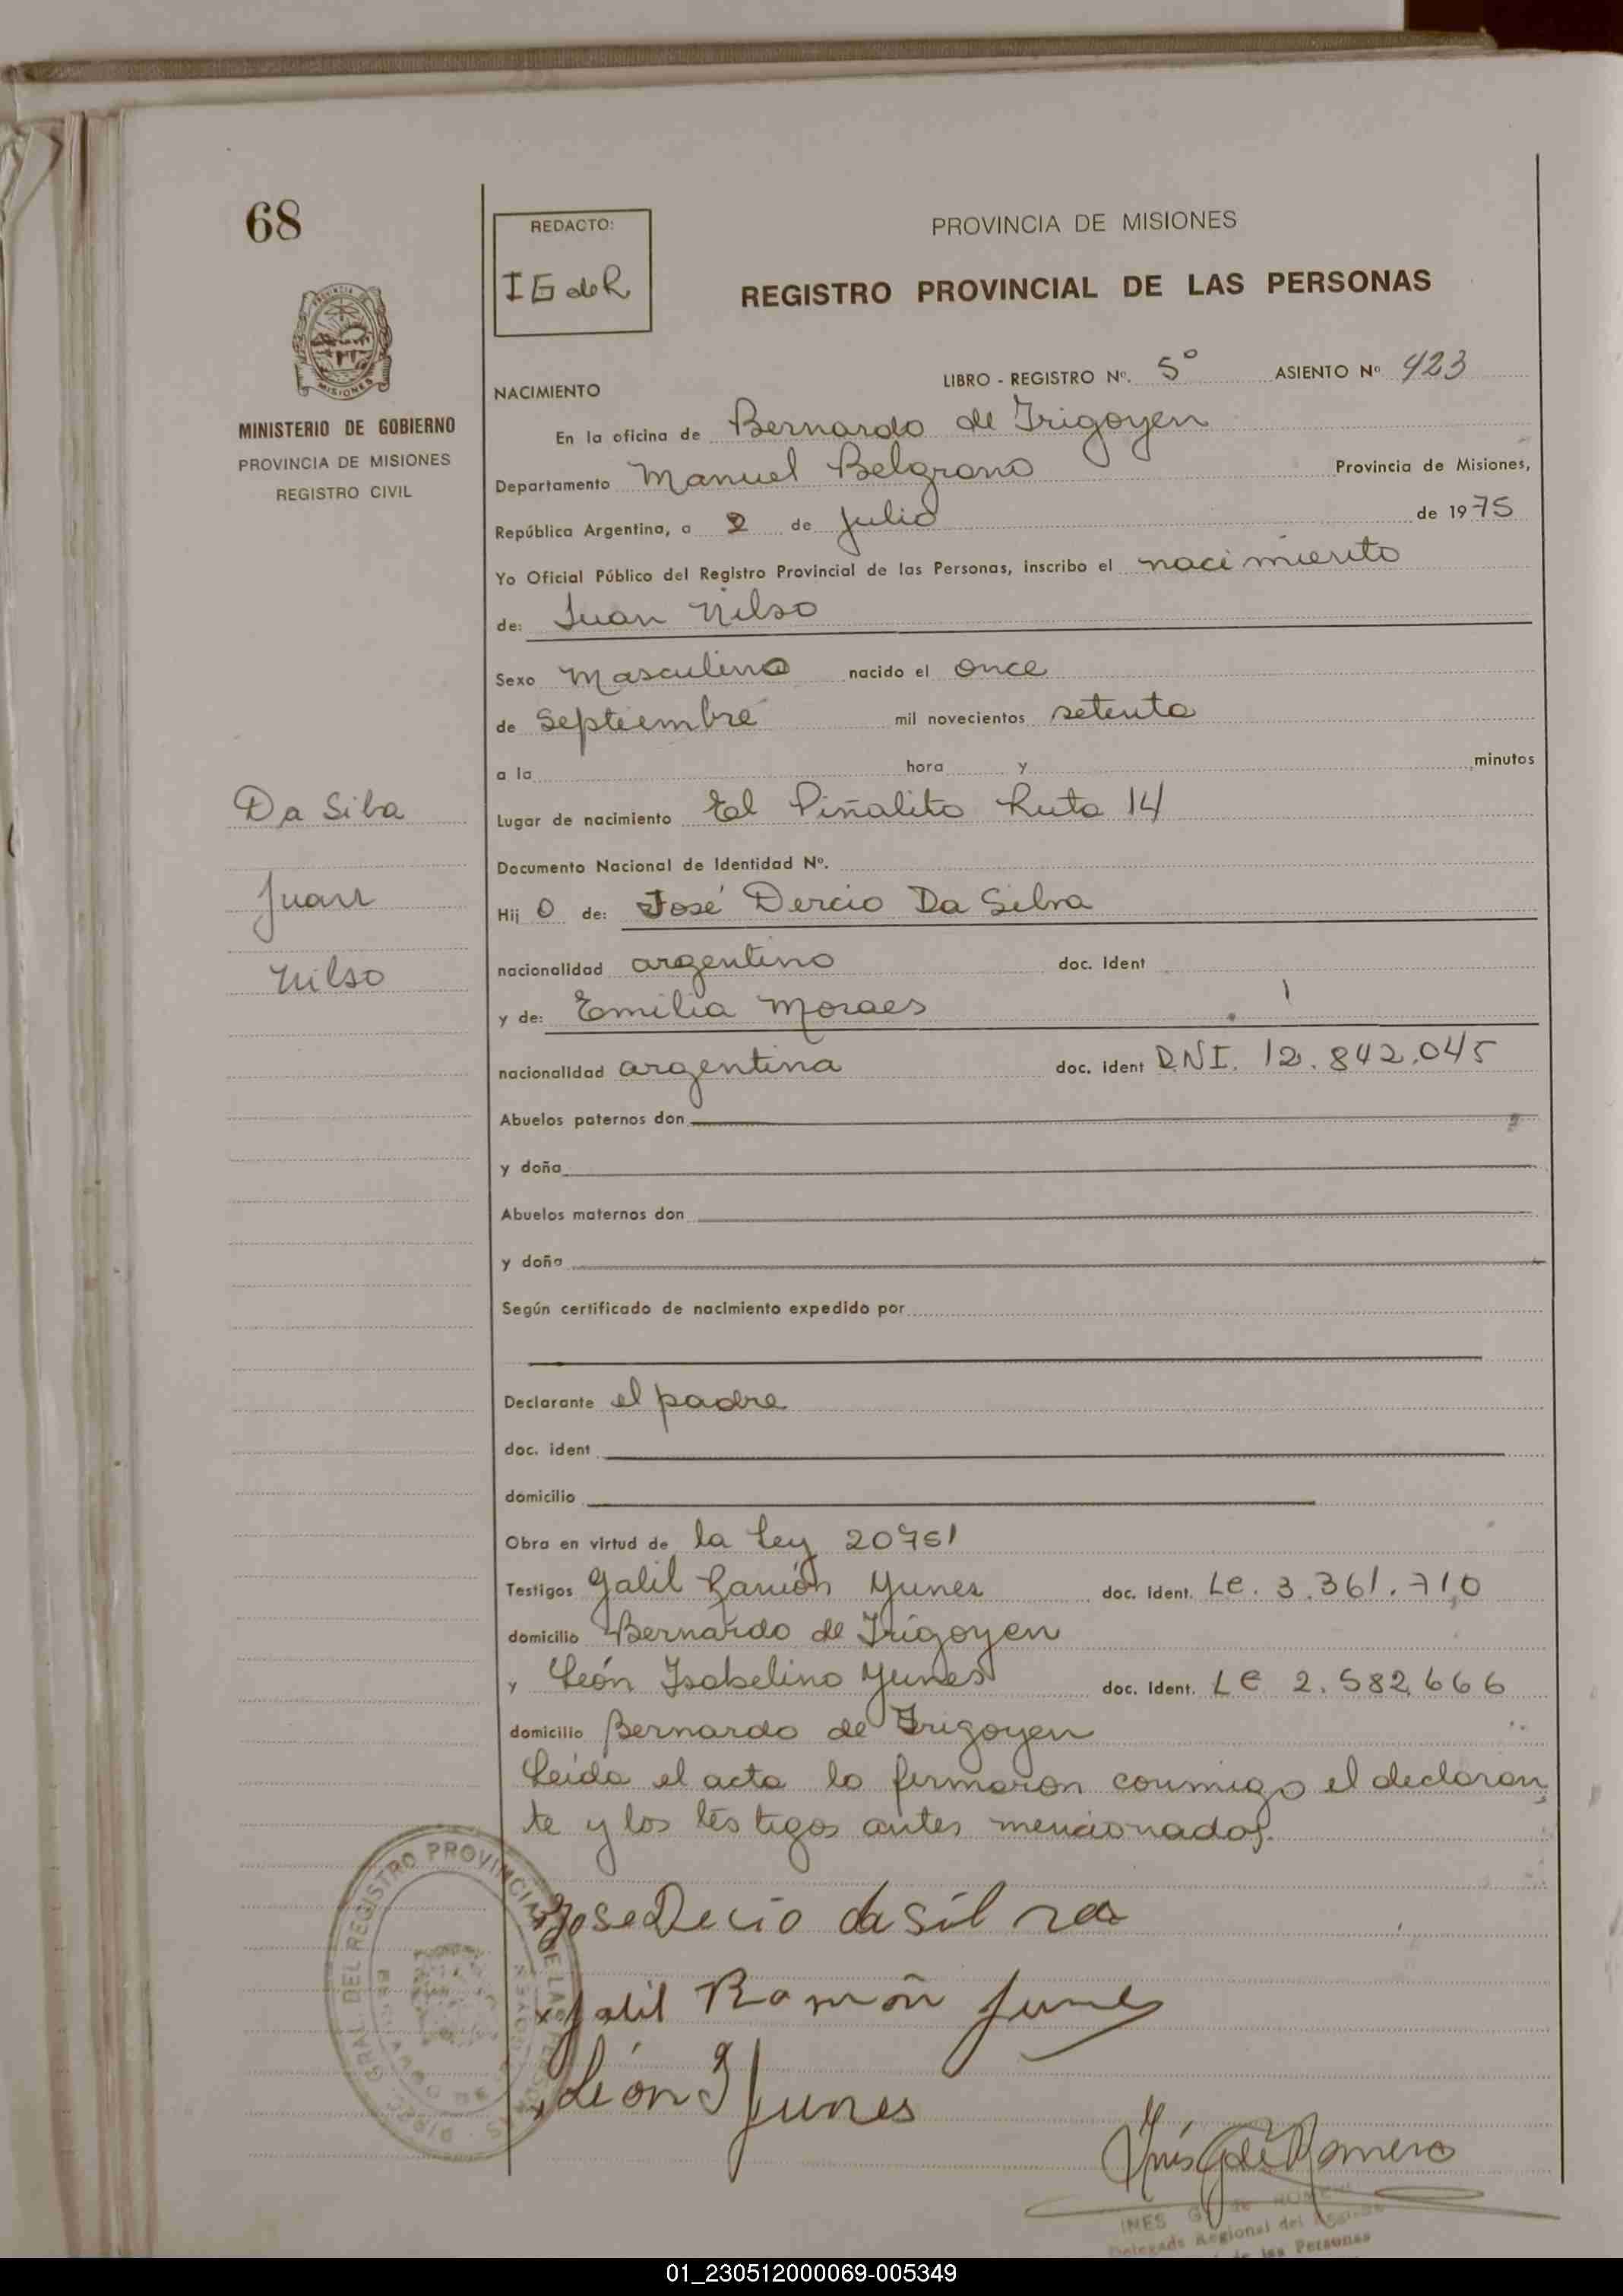 68
REDACTO:
I G de R
PROVINCIA DE MISIONES
REGISTRO PROVINCIAL DE LAS PERSONAS
MINISTERIO DE GOBIERNO
PROVINCIA DE MISIONES
REGISTRO CIVIL
NACIMIENTO
LIBRO - REGISTRO Nº. 5º ASIENTO Nº 423
En la oficina de Bernardo de Irigoyen
Departamento Manuel Belgrano Provincia de Misiones,
República Argentina, a 2 de Julio de 1975
Yo Oficial Público del Registro Provincial de las Personas, inscribo el nacimiento
de: Juan Nilso
Sexo Masculino nacido el once
de Septiembre mil novecientos setenta
a la hora y minutos
Da Silva
Juan
Nilso
Lugar de nacimiento El Piñalito Ruta 14
Documento Nacional de Identidad Nº.
Hij o de: José Dercio Da Silva
nacionalidad argentino doc. ident
y de: Emilia Moraes
nacionalidad argentina doc. ident DNI. 12.842.045
Abuelos paternos don
y doña
Abuelos maternos don
y doña
Según certificado de nacimiento expedido por
Declarante el padre
doc. ident
domicilio
Obra en virtud de la Ley 20751
Testigos Galil Ramón Yunes doc. ident. Le. 3.361.710
domicilio Bernardo de Irigoyen
y León Isabelino Yunes doc. Ident. LE 2.582.666
domicilio Bernardo de Irigoyen
Leída el acta la firmaron conmigo el declaran
te y los testigos antes mencionados.
Jose Decio da silva
x Jalil Ramón Junes
x León I Junes
Inés G de Romero
DIREC. GRAL. DEL REGISTRO PROVINCIAL DE LAS PERSONAS
INES G. de ROMERO
Delegada Regional del Registro
de las Personas
01_230512000069-005349